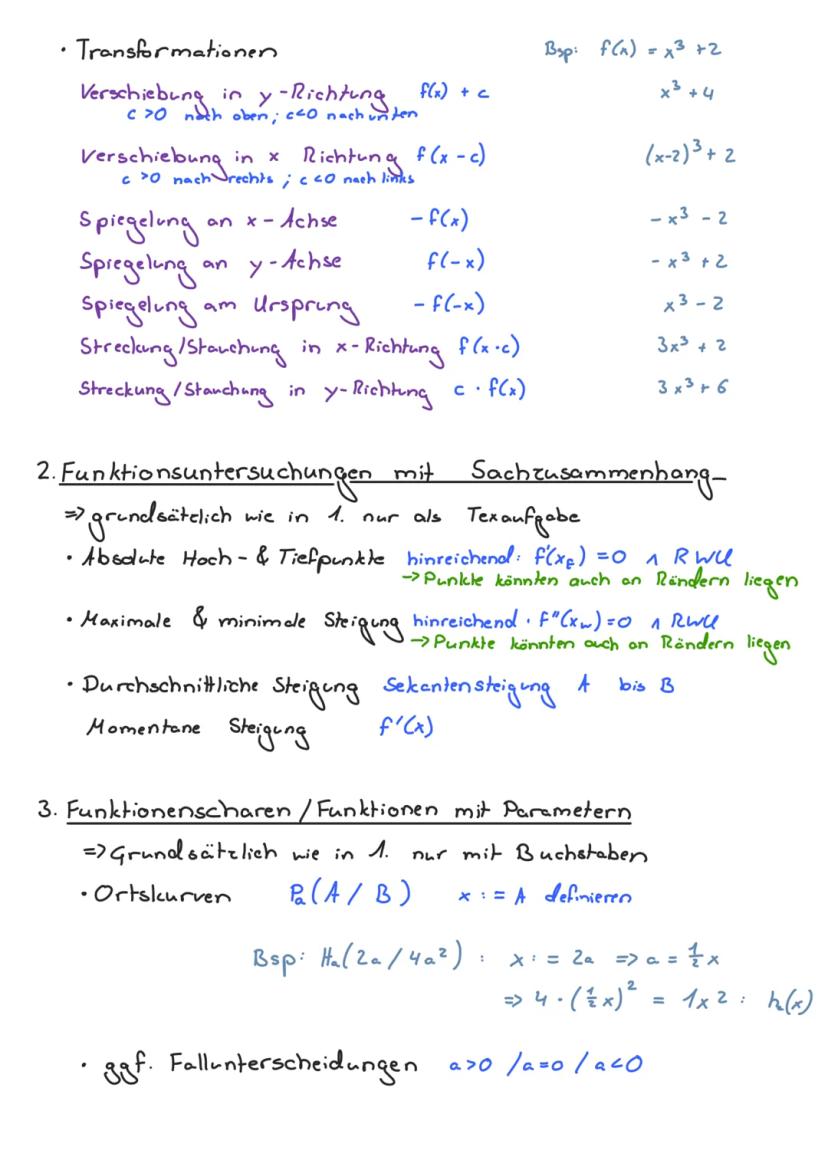 • Transformationen Bsp: f(x) = x³ +2
Verschiebung in y-Richtung f(x) + c x³ +4
c >0 nach oben; c<0 nach unten
Verschiebung in x Richtung f(x-c) (x-2)³ + 2
c >0 nach rechts ; c <0 nach links
Spiegelung an x-Achse -f(x) -x³ - 2
Spiegelung an y-Achse f(-x) -x³ +2
Spiegelung am Ursprung -f(-x) x³ - 2
Streckung/Stauchung in x-Richtung f(x·c) 3x³ + 2
Streckung/Stauchung in y-Richtung c · f(x) 3x³ + 6
2. Funktionsuntersuchungen mit Sachzusammenhang
=> grundsätzlich wie in 1. nur als Texaufgabe
• Absolute Hoch- & Tiefpunkte hinreichend: f'(x_E) = 0 ∧ RWU
→ Punkte könnten auch an Rändern liegen
• Maximale & minimale Steigung hinreichend · f''(x_w) = 0 ∧ RWU
→ Punkte könnten auch an Rändern liegen
• Durchschnittliche Steigung Sekantensteigung A bis B
Momentane Steigung f'(x)
3. Funktionenscharen / Funktionen mit Parametern
=> Grundsätzlich wie in 1. nur mit Buchstaben
• Ortskurven Pa(A / B) x := A definieren
Bsp: Ha(2a / 4a²) : x := 2a => a = ½x
=> 4 · (½x)² = 1x2 : h(x)
• ggf. Fallunterscheidungen a>0 /a=0 / a<0